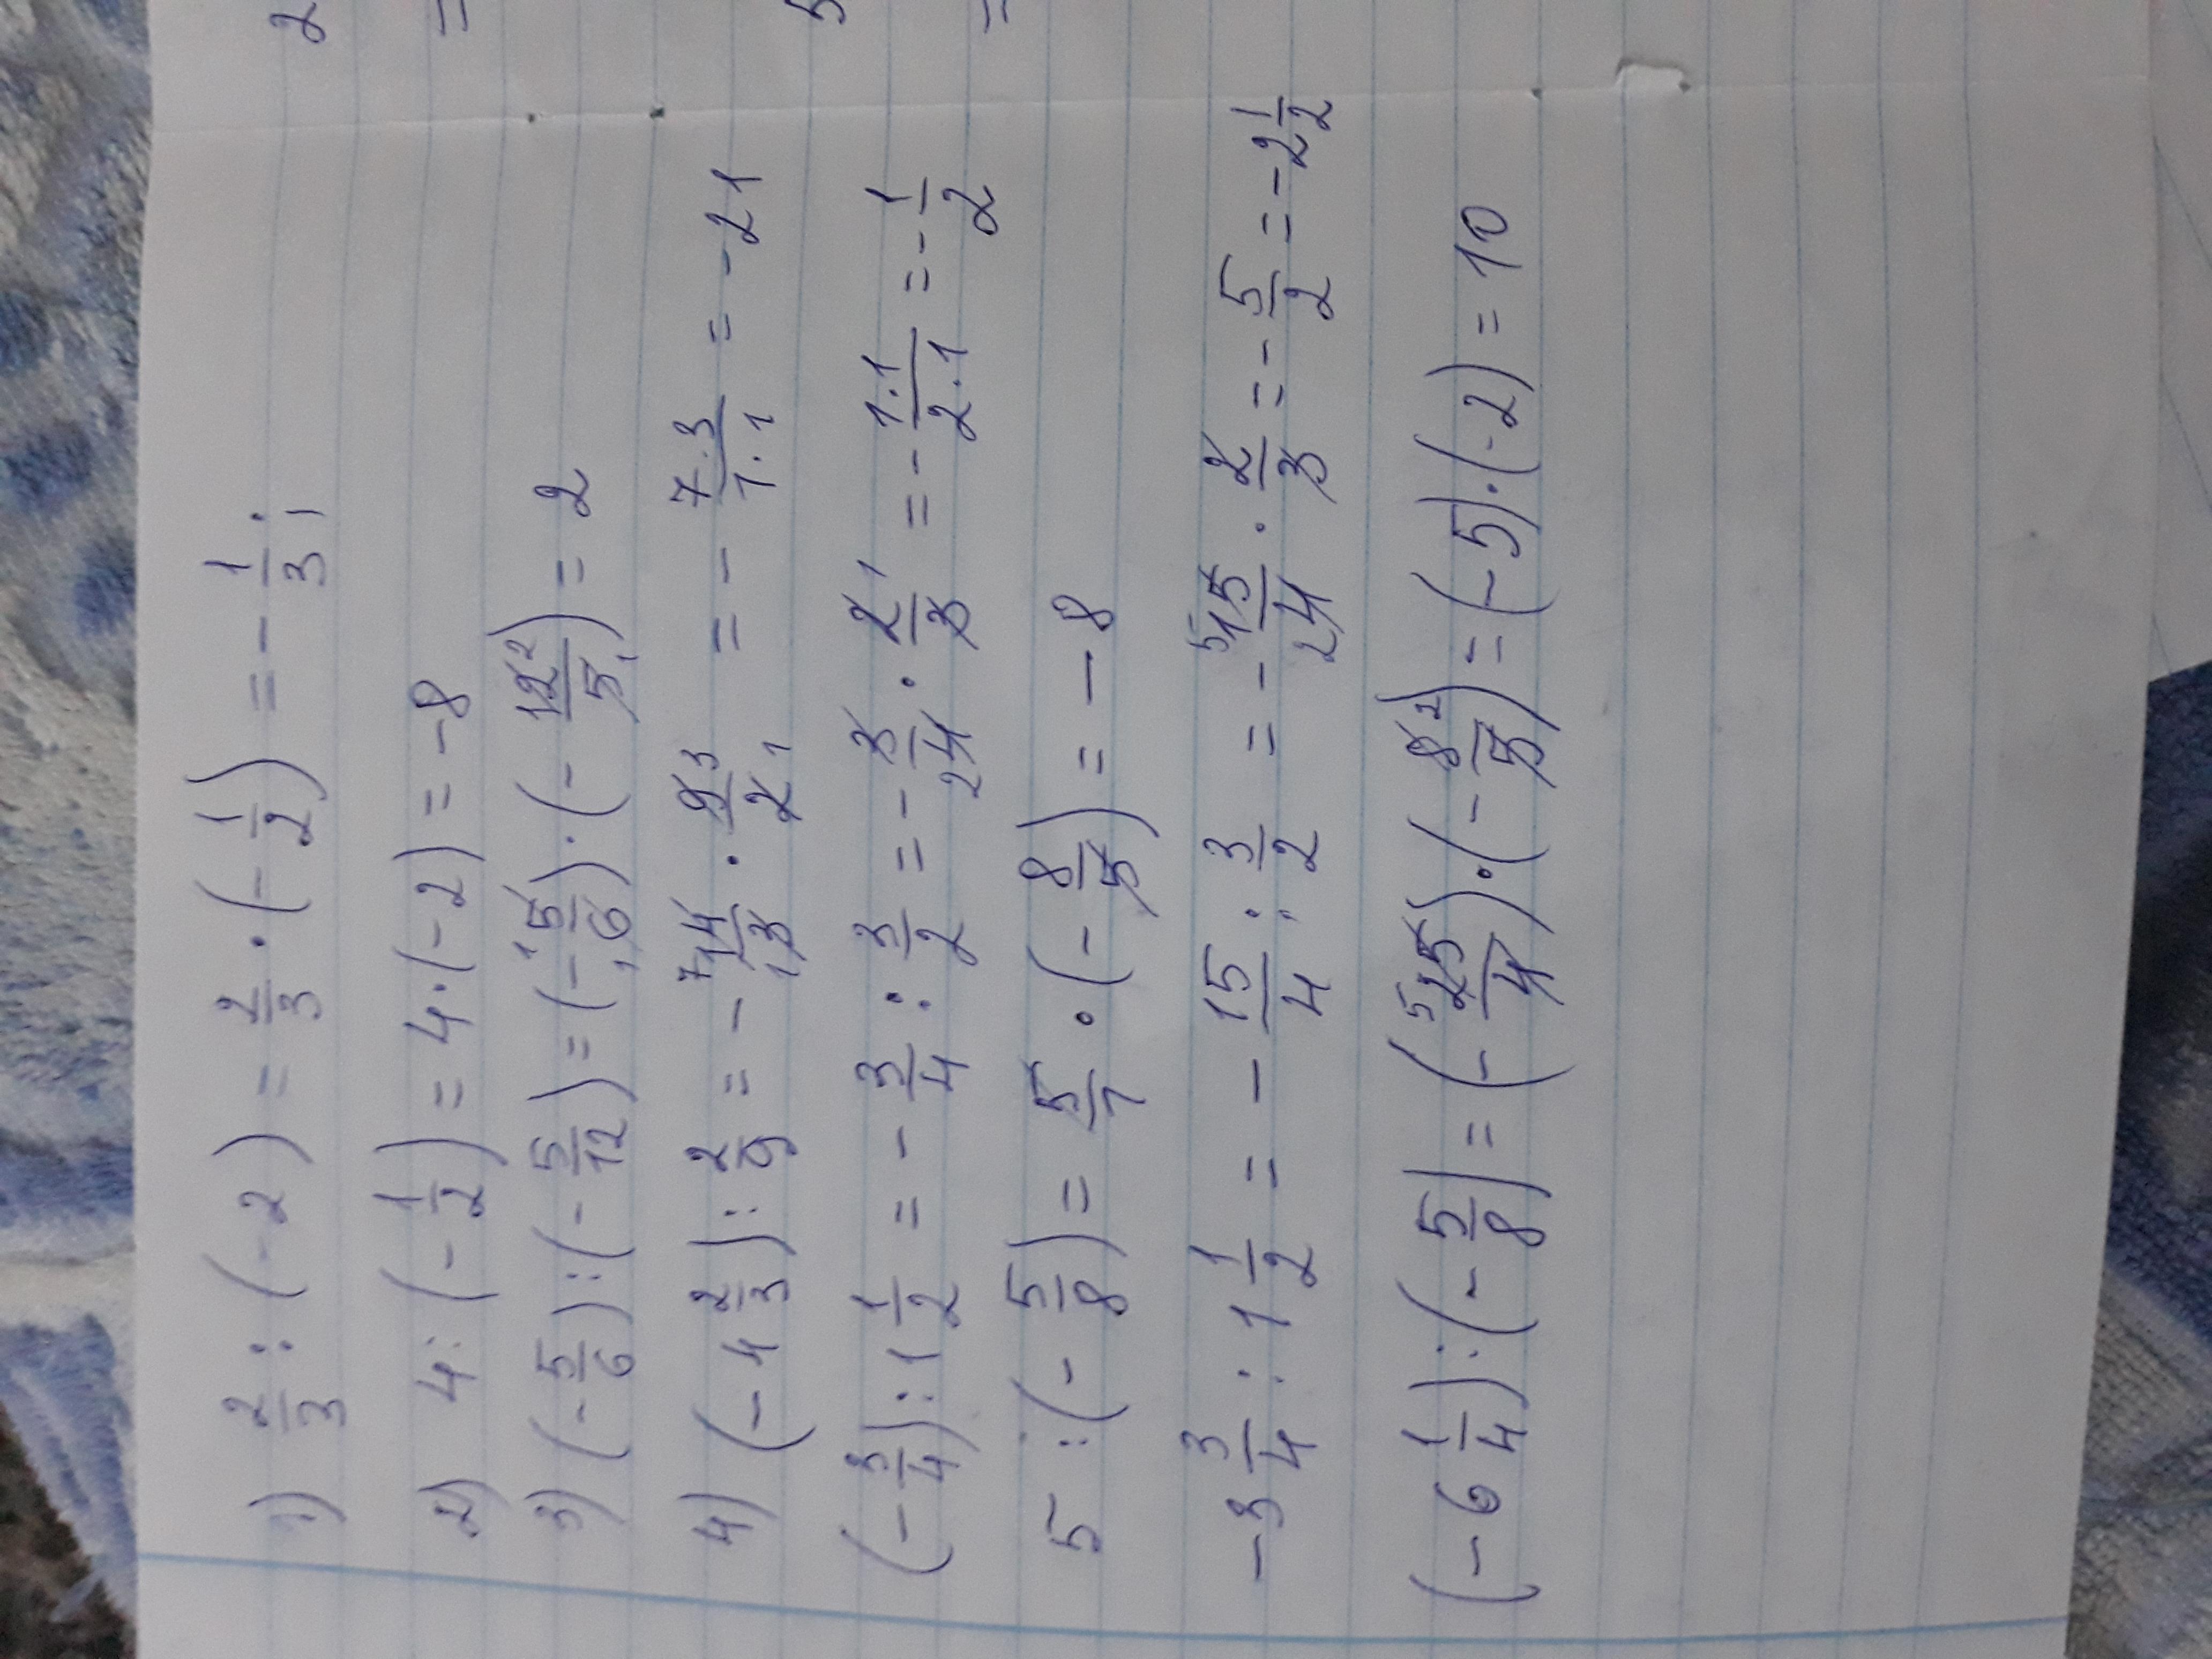 1) 2/3 : (-2) = 2/3 · (-1/2) = -1/3;
2) 4 : (-1/2) = 4 · (-2) = -8
3) (-5/6) : (-5/12) = (-5/6) · (-12/5) = 2
4) (-4 2/3) : 2/9 = -14/3 · 9/2 = -7·3/1·1 = -21
(-3/4) : 1 1/2 = -3/4 : 3/2 = -3/4 · 2/3 = -1·1/2·1 = -1/2
5 : (-5/8) = 5/1 · (-8/5) = -8
-3 3/4 : 1 1/2 = -15/4 : 3/2 = -15/4 · 2/3 = -5/2 = -2 1/2
(-6 1/4) : (-5/8) = (-25/4) · (-8/5) = (-5) · (-2) = 10
2
=
5
=